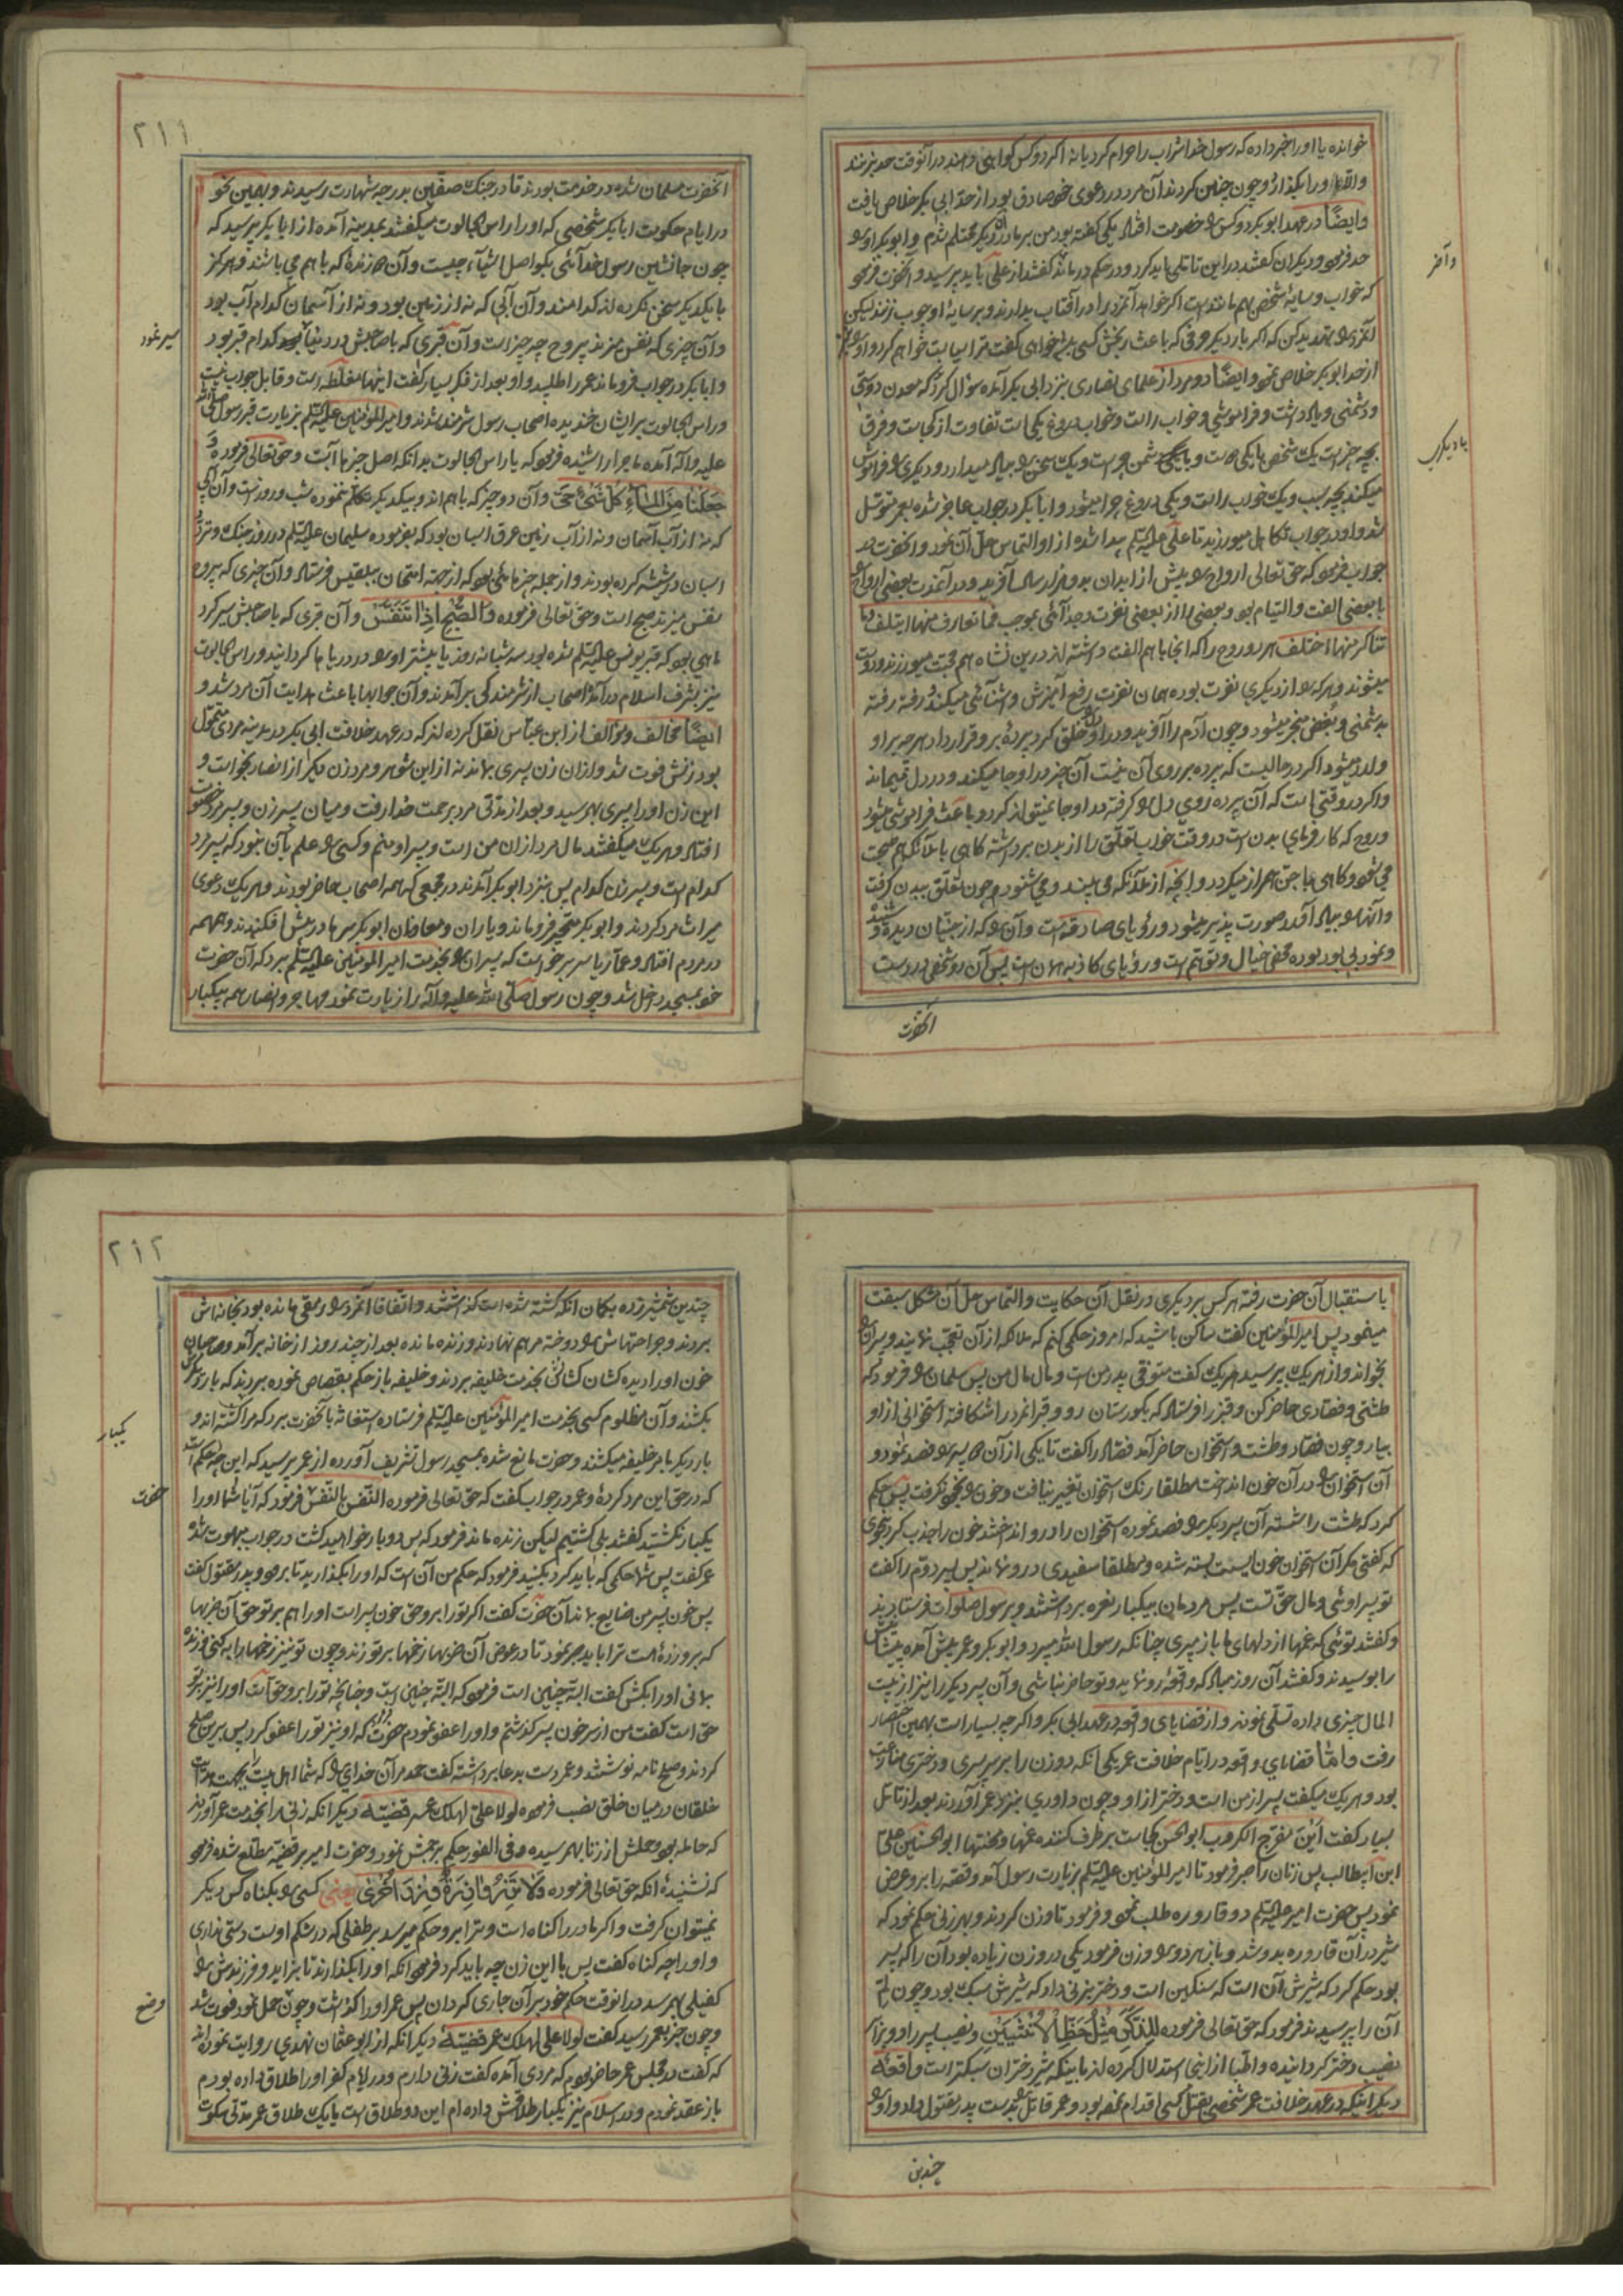 خوانده یا اورا خبر داده که رسول خدا شراب را حرام کرد یا نه اکر دو کس کواهی دهند در آنوقت حد بزنند
والا اورا بکذار و چون چنین کردند آن مرد در دعوی خود صادق بود از حد ابی بکر خلاص یافت
وایضًا در عهد ابوبکر دو کس را خصومت افتاد یکی کفته بود من بر مادر دیکر محتلم شدم و ابوبکر او را
حد فرمود و دیکران کفتند در این تاملی باید کرد و در حکم درماند کفتند از علی باید پرسید و آنحضرت فرمود
که خواب و سایهٔ شخص هم مانند است اکر خواهد آنمرد را در آفتاب بدارند و بر سایهٔ او چوب زنند لیکن
آنمرد را تهدید کن که اکر بار دیکر حرفی که باعث رنجش کسی باشد خواهی کفت ترا سیاست خواهم کرد و او
از حد ابوبکر خلاص نمود وایضًا دو مرد از علمای نصاری بنزد ابی بکر آمده سؤال کرد که معدن دوستی
و دشمنی و یادداشت و فراموشی و خواب راست و خواب دروغ یکجاست تفاوت از کجاست و فرق
بچه چیز است یک شخص با یکی دوست و با یکی دشمن چراست و یک سخن را بیاد میدارد و دیکری را فراموش
میکند بچه سبب و یک خواب راست و یکی دروغ چرا میشود و ابابکر در جواب عاجز شده بعمر متوسل
شد و او در جواب تکاهل میورزید تا علی علیه السلام پیدا شده از او التماس حل آن نمود و آنحضرت در
جواب فرمود که حق تعالی ارواح را پیش از ابدان بدو هزار سال آفرید و در آنوقت بعضی ارواح را
با بعضی الفت و التیام بود و بعضی را از بعضی نفرت و جدائی بموجب فما تعارف منها ایتلف وما
تناکر منها اختلف هر دو روح را که آنجا با هم الفت داشته اند درین نشاه هم محبت میورزند و دوست
میشوند و هر که را از دیکری نفرت بوده همان نفرت رفع آمیزش و آشنائی میکند و رفته رفته
بدشمنی و بغض منجر میشود و چون آدم را آفرید و در او دل خلق کرد پردهٔ برو قرار داد هرچه بر او
وارد میشود اکر در حالیست که پرده بر روی آن نیست آن چیز در او جا میکند و در دل میماند
و اکر در وقتی است که آن پرده روی دل را کرفته در او جا نمیتواند کرد و باعث فراموشی میشود
و روح که کارفرمای بدن است در وقت خواب تعلق را از بدن برداشته کاهی با ملائکه هم صحبت
می شود و کاهی با جن همراز میکردد و آنچه از ملائکه می بیند و می شنود و چون تعلق ببدن کرفت
و آنها را بیاد آورد صورت پذیر میشود و رؤیای صادقه است و آن را که از جنیان دیده و شنیده
و نمود بی بود بوده محض خیال و توهم است و رؤیای کاذبه همان است پس آن دو شخص در دست
و آخر
با دیکری
آنحضرت
۲۱۱
آنحضرت مسلمان شده در خدمت بودند تا در جنک صفین بدرجهٔ شهادت رسیدند و بهمین نحو
در ایام حکومت ابابکر شخصی که اورا راس الجالوت میکفتند بمدینه آمده از ابابکر پرسید که
چون جانشین رسول خدائی بکو اصل اشیآء چیست و آن دو زندهٔ که با هم می باشند و هرکز
با یکدیکر سخن نکرده اند کدامند و آن آبی که نه از زمین بود و نه از آسمان کدام آب بود
و آن چیزی که نفس میزند بیروح چه چیز است و آن قبری که با صاحبش در دنیا بود کدام قبر بود
و ابابکر در جواب فرو ماند عمر را طلبید و او بعد از فکر بسیار کفت اینها مغلطه است و قابل جواب نیست
و راس الجالوت بر ایشان خندیده اصحاب رسول شرمنده شدند و امیرالمؤمنین علیه السلام بزیارت قبر رسول صلی الله
علیه وآله آمده ماجرا را شنیده فرمود که یا راس الجالوت بدانکه اصل چیزها آبست و حق تعالی فرموده وَ
جَعَلْنَا مِنَ الْمَاءِ کُلَّ شَیْءٍ حَیٍّ و آن دو چیز که با هم اند و بیکدیکر تکلم ننموده شب و روز است و آن آبی
که نه از آب آسمان و نه از آب زمین عرق اسبان بود که بفرموده سلیمان علیه السلام در روز جنک و تردد
اسبان در شیشه کرده بودند و از جمله چیزهائی بود که از جهت امتحان بلقیس فرستاد و آن چیزی که بیروح
نفس میزند صبح است و حق تعالی فرموده وَالصُّبْحِ اِذَا تَنَفَّسَ و آن قبری که با صاحبش سیر کرد
ماهی بود که قبر یونس علیه السلام شده بود سه شبانه روز یا بیشتر او را در دریاها کردانید و راس الجالوت
نیز بشرف اسلام درآمد و اصحاب از شرمندکی برآمدند و آن جوابها باعث هدایت آن مرد شد و
ایضًا مخالف و مؤالف از ابن عباس نقل کرده اند که در عهد خلافت ابی بکر در مدینه مردی متمول
بود زنش فوت شد و از ان زن پسری بماند نه از این شوهر و مرد زن دیکر از انصار بخواست و
این زن اورا پسری بهم رسید و بعد از مدتی مرد برحمت خدا رفت و میان پسر زن و پسر مرد خصومت
افتاد و هر یک میکفتند مال مرد از ان من است و پسر او منم و کسی را علم بآن نبود که پسر مرد
کدام است و پسر زن کدام پس بنزد ابوبکر آمدند در مجمعی که همه اصحاب حاضر بودند و هر یک دعوی
میراث مرد کردند و ابوبکر متحیر فرو ماند و یاران و معاونان ابوبکر سرها در پیش افکندند و همهمه
در مردم افتاد و عمار یاسر برخواست که پسران را بخدمت امیرالمؤمنین علیه السلام برد که آن حضرت
خود بمسجد داخل شد و چون رسول صلی الله علیه وآله را زیارت نمود مهاجر و انصار همه بیکبار
سیر نمود
باستقبال آن حضرت رفته هر کس بر دیکری در نقل آن حکایت و التماس حل آن مشکل سبقت
مینمود پس امیرالمؤمنین کفت ساکن باشید که امروز حکمی کنم که ملائکه از آن تعجب نمایند و پسران را
بخواند و از هر یک پرسید هر یک کفت متوفی پدر من است و مال مال من پس سلمان را فرمود که
طشتی و فصادی حاضر کن و قنبر را فرستاد که بکورستان رو و قبر آنمرد را شکافته استخوانی از او
بیار و چون فصاد و طشت و استخوان حاضر آمد فصاد را کفت تا یکی از آن دو پسر را فصد نمود و
آن استخوان را در آن خون انداخت مطلقا رنک استخوان تغییر نیافت و خون را بخود نکرفت پس حکم
کرد که طشت را شسته آن پسر دیکر را فصد نموده استخوان را درو انداختند خون را جذب کرد بنحوی
که کفتی مکر آن استخوان خون ایست بسته شده و مطلقا سفیدی درو نماند پس پسر دوم را کفت
تو پسر اوئی و مال حق تست پس مردمان بیکبار نعره برداشتند و بر رسول صلوات فرستادند
و کفتند توئی که غمها از دلهای ما باز میبری چنانکه رسول الله میبرد و ابوبکر و عمر پیش آمده پیشانیش
را بوسیدند و کفتند آن روز مباد که واقعهٔ رو نماید و تو حاضر نباشی و آن پسر دیکر را نیز از بیت
المال چیزی داده تسلی نمودند و از قضایای واقعه در عهد ابی بکر و اکرچه بسیار است بهمین اختصار
رفت و امّا قضایای واقعه در ایام خلافت عمر یکی آنکه دو زن را بر سر پسری و دختری منازعت
بود و هر یک میکفت پسر از من است و دختر از او و چون داوری بنزد عمر آوردند بعد از تامل
بسیار کفت اَیْنَ مفرج الکروب ابوالحسن کجاست برطرف کننده غمها و محنتها ابو الحسنین علی
ابن ابیطالب پس زنان را صبر فرمود تا امیرالمؤمنین علیه السلام بزیارت رسول آمد و قصه را برو عرض
نمود پس حضرت امیر علیه السلام دو قاروره طلب نمود و فرمود تا وزن کردند و بهر زنی حکم نمود که
شیر در آن قاروره بدوشد و باز هر دو را وزن فرمود یکی در وزن زیاده بود آن را که پسر
بود حکم کرد که شیرش آن است که سنکین است و دختر بزنی داد که شیرش سبک بود و چون لم
آن را پرسیدند فرمود که حق تعالی فرموده لِلذَّکَرِ مِثْلُ حَظِّ الْاُنْثَیَیْنِ و نصیب پسر را دو برابر
نصیب دختر کردانیده و اطبا از اینجا استدلال کرده اند باینکه شیر دختران سبکتر است واقعهٔ
دیکر اینکه در عهد خلافت عمر شخصی بقتل کسی اقدام نموده بود و عمر قاتل را بدست پدر مقتول داد و او را
چندین
۲۱۲
چندین شمشیر زده بکمان آنکه کشته شده است کذاشتند و اتفاقا آنمرد را رمقی مانده بود بخانه اش
بردند و جراحتهاش را دوخته مرهم نهادند و زنده مانده بعد از چند روز از خانه برآمد و صاحبان
خون اورا دیده کشان کشان بخدمت خلیفه بردند و خلیفه باز حکم بقصاص نموده بردند که بار دیکرش
بکشند و آن مظلوم کسی بخدمت امیرالمؤمنین علیه السلام فرستاده استغاثه بآنحضرت برد که مرا کشته اند و
بار دیکر بامر خلیفه میکشند و حضرت مانع شده بمسجد رسول تشریف آورده از عمر پرسید که این چه حکم است
که در حق این مرد کردهٔ و عمر در جواب کفت که حق تعالی فرموده النفس بالنفس فرمود که آیا شما اورا
یکبار نکشتید کفتند بلی کشتیم لیکن زنده ماند فرمود که پس دو بار خواهید کشت در جواب مبهوت شده
عمر کفت پس شما حکمی که باید کرد بکنید فرمود که حکم من آن است که اورا بکذارید تا برود و پدر مقتول کفت
پس خون پسر من ضایع بماند آن حضرت کفت اکر تورا برو حق خون پسر است اورا هم بر تو حق آن ضربها
که برو زدهٔ هست ترا باید صبر نمود تا در عوض آن ضربها زخمها بر تو زند و چون تو نیز زخمها را به کنی و زنده
بمانی اورا بکش کفت البته چنین است فرمود که البته چنین است و چنانچه تورا برو حق است اورا نیز بر تو
حق است کفت من از سر خون پسر کذشتم و اورا عفو نمودم حضرت فرمود که او نیز تورا عفو کرد پس برین صلح
کردند و صلح نامه نوشتند و عمر دست بدعا برداشته کفت حمد مر آن خدای را که شما اهل بیت را بجهت هدایت
خلقان در میان خلق نصب فرموده لولا علیّ لهلک عمر قضیّهٔ دیکر آنکه زنی را بخدمت عمر آوردند
که حامله بود و حملش از زنا بهم رسیده و فی الفور حکم برجمش نمود و حضرت امیر بر قضیه مطلع شده فرمود
که نشنیدهٔ آنکه حق تعالی فرموده وَلَا تَزِرُ وَازِرَةٌ وِزْرَ اُخْرَی یعنی کسی را بکناه کس دیکر
نمیتوان کرفت و اکر مادر را کناه است و ترا برو حکم میرسد بر طفلی که در شکم اوست دستی نداری
و اورا چه کناه کفت پس با این زن چه باید کرد فرمود آنکه اورا بکذارند تا بزاید و فرزندش را
کفیلی بهم رسد در انوقت حکم خود بر آن جاری کردان پس عمر اورا کذاشت و چون حمل نمود فوت شد
و چون خبر بعمر رسید کفت لولا علی لهلک عمر قضیّهٔ دیکر آنکه از ابو عثمان نهدی روایت نموده اند
که کفت در مجلس عمر حاضر بودم که مردی آمده کفت زنی دارم و در ایام کفر اورا طلاق داده بودم
باز عقد نمودم و در اسلام نیز یکبار طلاقش داده ام این دو طلاق است یا یک طلاق عمر مدتی سکوت
یکبار
حضرت
وضع